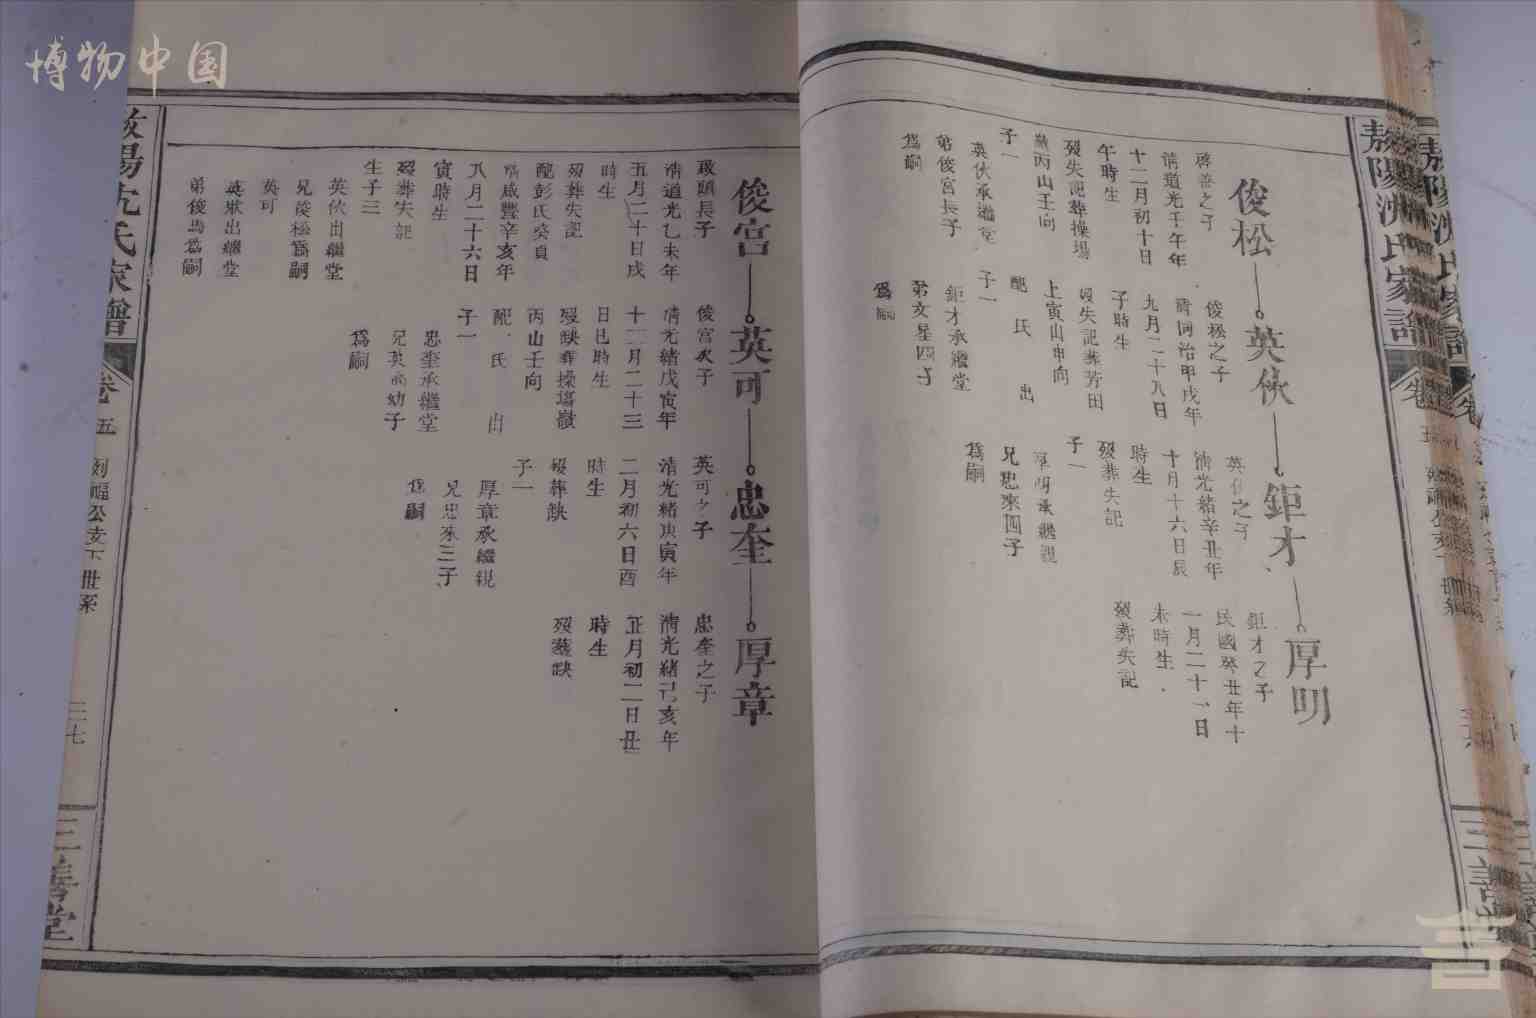 博物中国
敖陽沈氏家譜
俊松
英伙
鉅才
厚明
啓善之子
清道光壬午年
十二月初十日
午時生
歿失記葬操場
嶺丙山壬向
子一
英伙承繼堂
弟俊宮長子
爲嗣
俊松之子
清同治甲戌年
九月二十八日
子時生
歿失記葬芳田
上寅山申向
配 氏 出
子一
鉅才承繼堂
弟文星四子
爲嗣
英伙之子
清光緒辛丑年
十月十六日辰
時生
歿葬失記
子一
厚明承繼親
兄忠來四子
爲嗣
鉅才之子
民國癸丑年十
一月二十一日
未時生
歿葬失記
俊宮
英可
忠奎
厚章
啟頤長子
清道光乙未年
五月二十日戌
時生
歿葬失記
配彭氏癸貞
清咸豐辛亥年
八月二十六日
寅時生
歿葬失記
生子三
英伙出繼堂
兄俊松爲嗣
英可
英狀出繼堂
弟俊馬爲嗣
俊宮次子
清光緒戊寅年
十二月二十三
日巳時生
歿缺葬操塲嶺
丙山壬向
配 氏 出
子一
忠奎承繼堂
兄英尚幼子
爲嗣
英可之子
清光緒庚寅年
二月初六日酉
時生
歿葬缺
子一
厚章承繼親
兄忠來三子
爲嗣
忠奎之子
清光緒己亥年
正月初二日丑
時生
歿葬缺
敖陽沈氏家譜
卷五
公支下世系
三七
三善堂